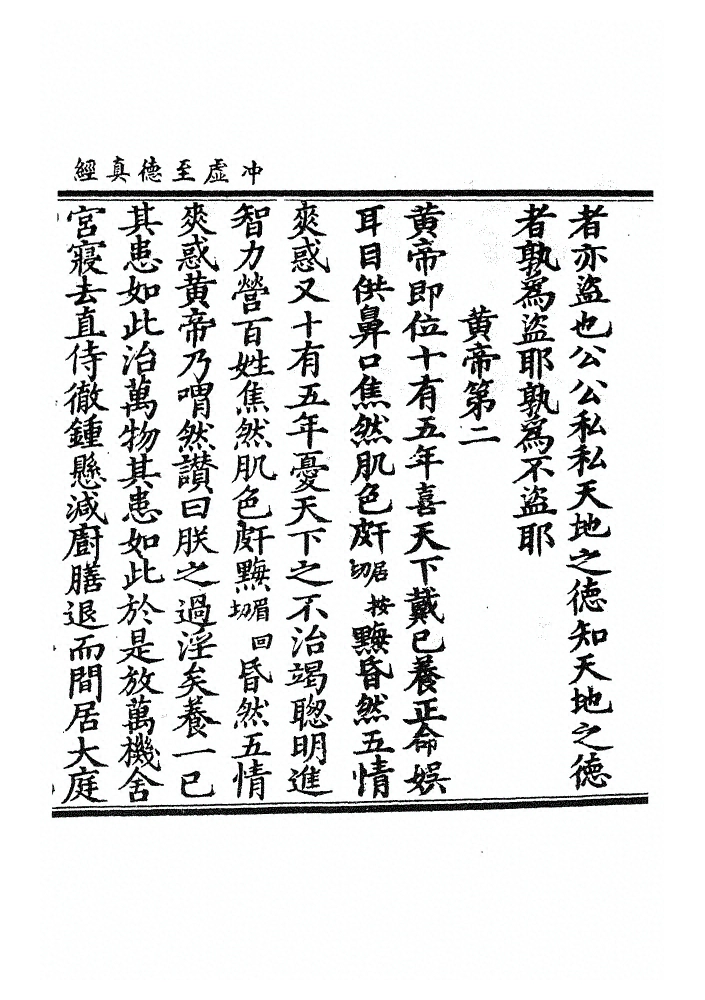 冲虛至德真經
者亦盜也公公私私天地之德知天地之德
者孰為盜耶孰為不盜耶
黃帝第二
黃帝即位十有五年喜天下戴已養正命娛
耳目供鼻口焦然肌色皯居按切黣昏然五情
爽惑又十有五年憂天下之不治竭聰明進
智力營百姓焦然肌色皯黣眉回切昏然五情
爽惑黃帝乃喟然讚曰朕之過淫矣養一已
其患如此治萬物其患如此於是放萬機舍
宮寢去直侍徹鍾懸減廚膳退而間居大庭